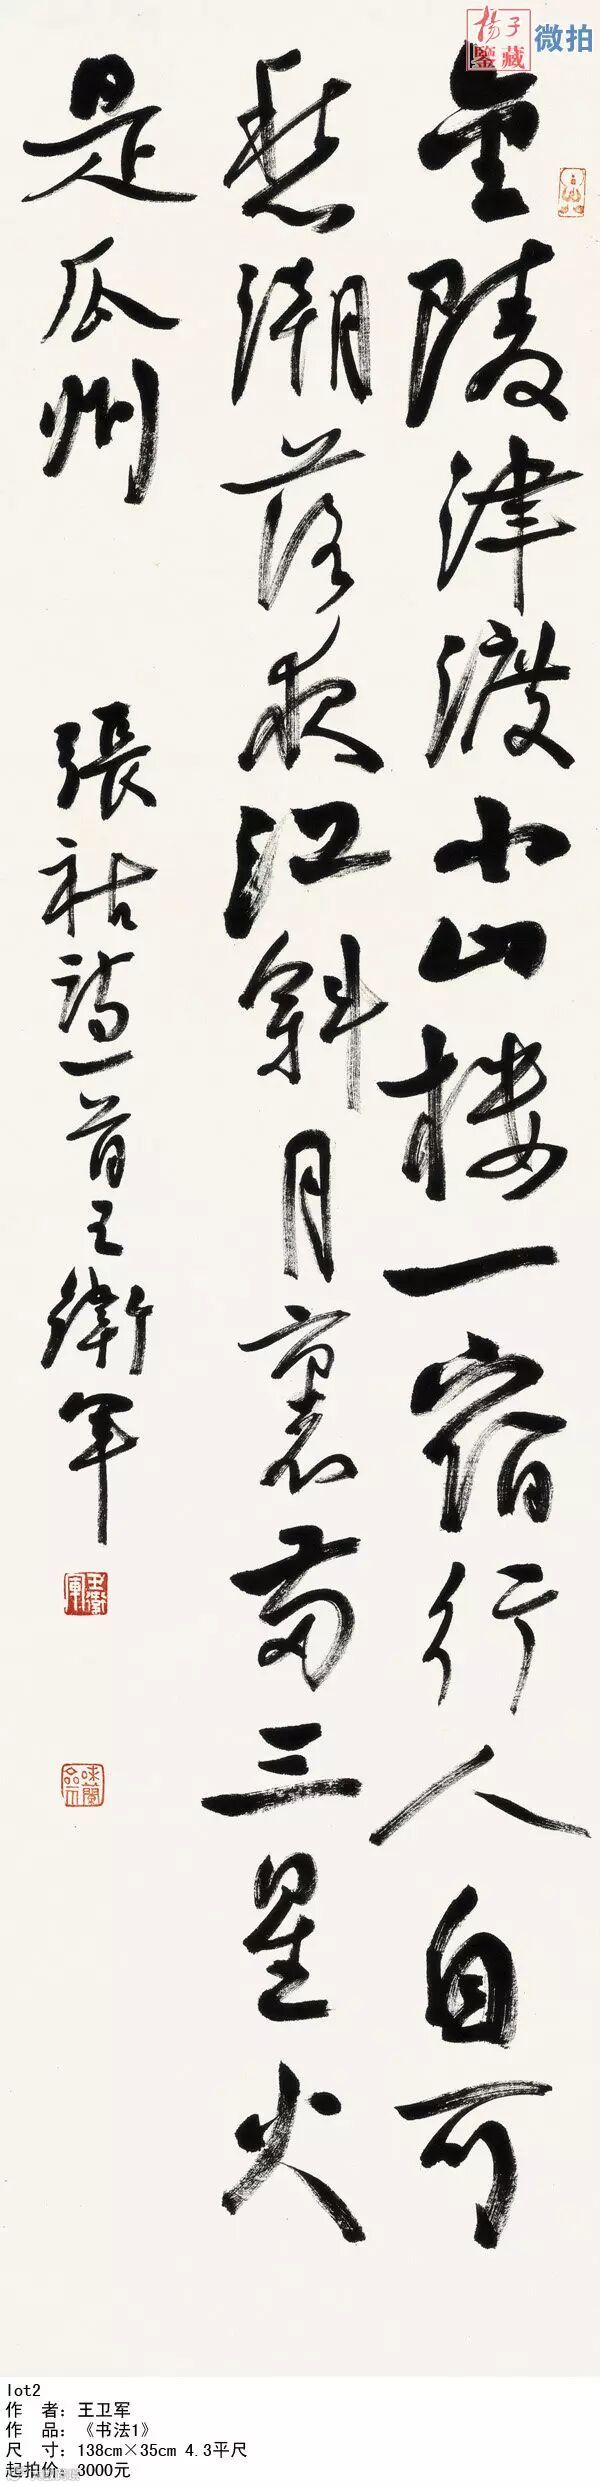 揚子
鑒藏
微拍
金陵津渡小山樓一宿行人自可
愁潮落夜江斜月裏兩三星火
是瓜州
張祜詩一首王衛軍
王衛軍
lot2
作 者：王卫军
作 品：《书法1》
尺 寸：138cm×35cm 4.3平尺
起拍价：3000元